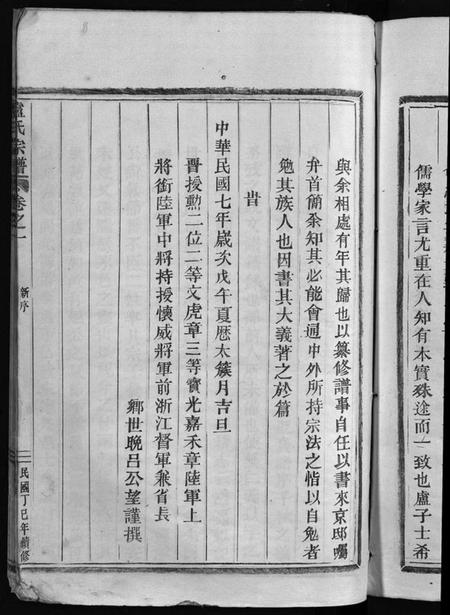 儒學家言尤重在人知有本實殊途而一致也盧子士希
與余相處有年其歸也以纂修譜事自任以書來京邸囑
弁首簡余知其必能會通中外所持宗法之恉以自勉者
勉其族人也因書其大義著之於篇
旹
中華民國七年歲次戊午夏曆太簇月吉旦
晉授勳二位二等文虎章三等寶光嘉禾章陸軍上
將銜陸軍中將特授懷威將軍前浙江督軍兼省長
鄉世晚呂公望謹撰
盧氏宗譜
卷之一
新序
民國丁巳年續修
8